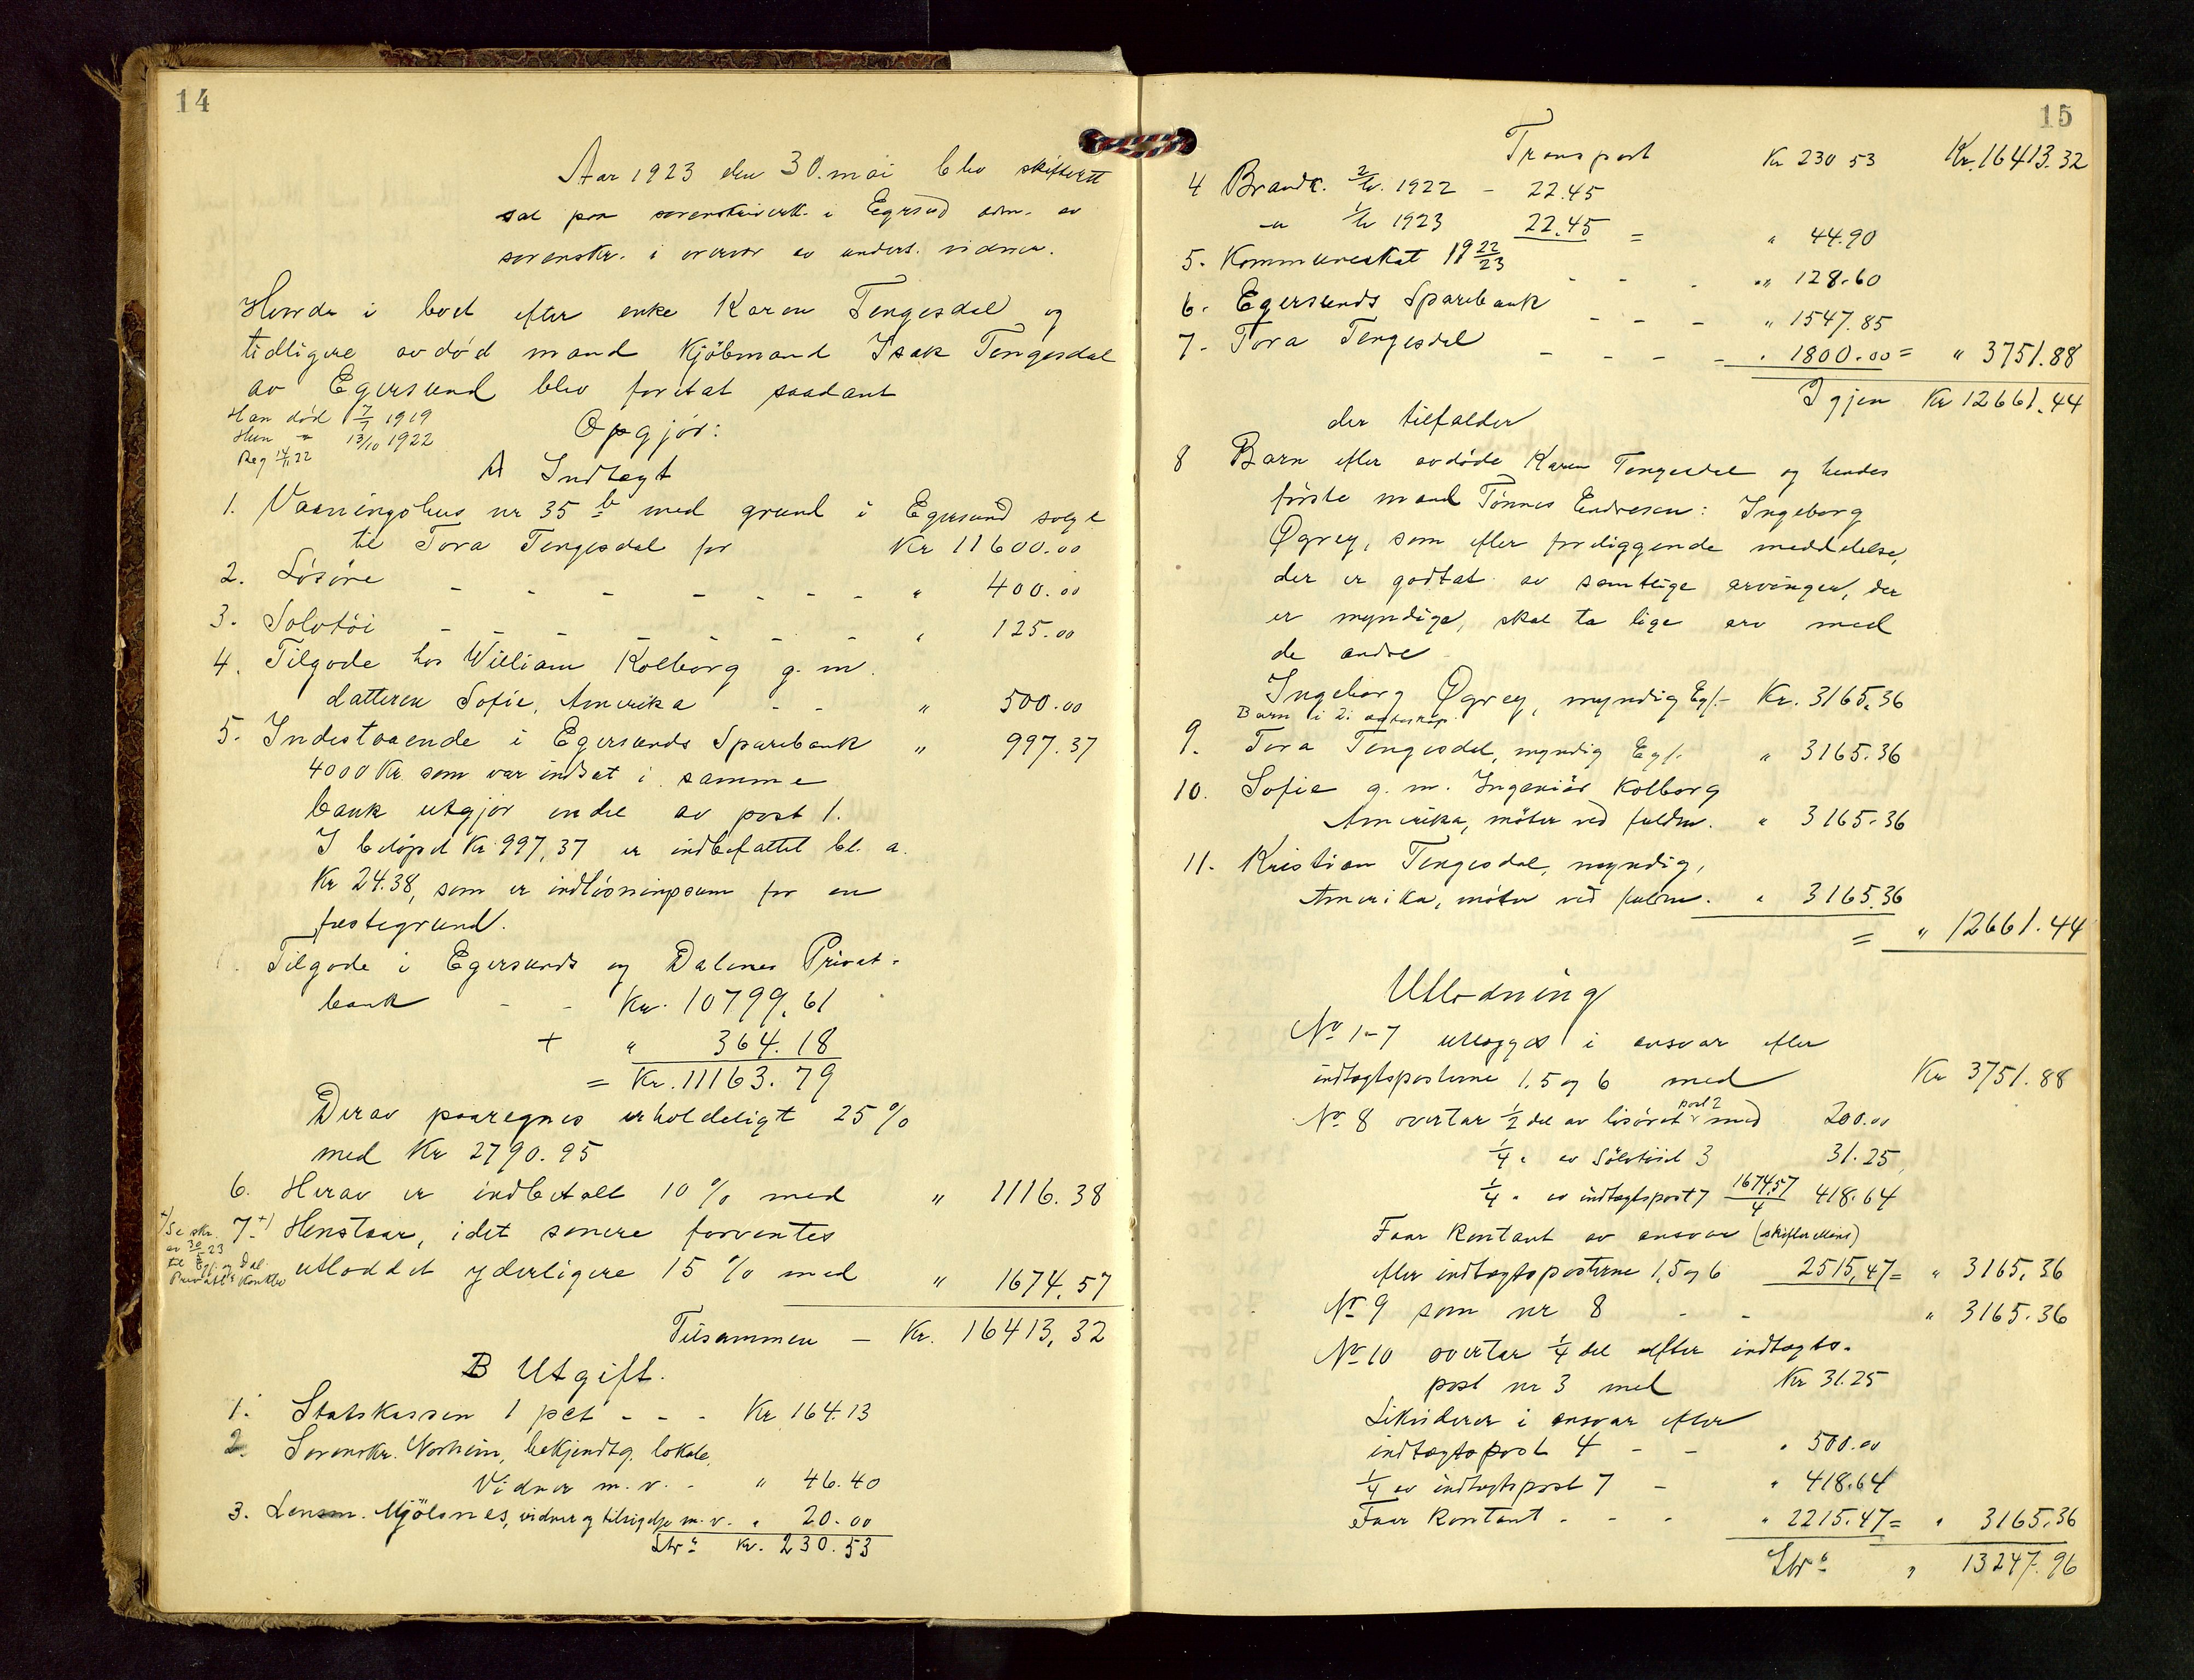 14
Aar 1923 den 30. mai blev skifterett
sat paa sorenskriverk. i Egersund adm. av
sorenskr. i overvær av unders. vidner.
Hvorda i boet efter enke Karen Tengesdal og
tidligere avdød mand Kjöbmand Isak Tengesdal
av Egersund blev foretat saadant
Han död 7/7 1919
Hun " 13/10 1922
Reg 14/11 22
Opgjör:
A Indtægt
1. Vaaningshus nr 35 b med grund i Egersund solgt
til Tora Tengesdal for Kr 11600.00
2. Lösöre - - - - - - - " 400.00
3. Solvtöi - - - - - - - " 125.00
4. Tilgode hos William Kolborg g. m.
datteren Sofie, Amerika - - " 500.00
5. Indestaaende i Egersunds Sparebank " 997.37
4000 Kr. som var indsat i samme
bank utgjör endel av post 1.
I belöpet Kr 997,37 er indbefattet bl. a.
Kr 24.38, som er indlösningssum for en
festegrund.
Tilgode i Egersunds og Dalenes Privat-
bank - - Kr. 10799.61
+ " 364.18
= Kr. 11163.79
Derav paaregnes erholdeligt 25 %
med Kr 2790.95
6. Herav er indbetalt 10 % med " 1116.38
7. +) Henstaar, idet senere forventes
utloddet yderligere 15 % med " 1674.57
+) Se skr.
av 30/5 23
til Eg. og Dal.
Privatb. Konkbo
Tilsammen - Kr. 16413,32
B Utgift.
1. Statskassen 1 pct - - - Kr 164.13
2. Sorenskr. Norheim, bekjendtg. lokale,
Vidner m. v. - " 46.40
3. Lensm. Mjölsnes, vidner og tilsigelse m. v. " 20.00
Ltr: Kr. 230.53
15
Transport Kr 230 53 Kr. 16413.32
4 Brandk. 2/hv. 1922 - 22.45
-" 1/hv 1923 22.45 = " 44.90
5. Kommuneskat 19 22/23 - - - " 128.60
6. Egersunds Sparebank - - - " 1547.85
7. Tora Tengesdal - - - - " 1800.00 = " 3751.88
Igjen Kr 12661.44
der tilfalder
8 Barn efter avdöde Karen Tengesdal og hendes
förste mand Tönnes Endresen: Ingeborg
Øgrey, som efter foreliggende meddelelse,
der er godtat av samtlige arvinger, der
er myndige, skal ta lige arv med
de andre
Ingeborg Øgrey, myndig Eg/.- Kr. 3165.36
Barn i 2. egteskap.
9. Tora Tengesdal, myndig Eg/. " 3165.36
10. Sofie g. m. Ingeniör Kolborg
Amerika, möter ved fuldm. " 3165.36
11. Kristian Tengesdal, myndig,
Amerika, möter ved fuldm. " 3165.36
= " 12661.44
Utlodning
No 1-7 utlægges i ansvar efter
indtægtsposterne 1, 5 og 6 med Kr 3751.88
No 8 overtar 1/2 del av lösöret post 2 med 200.00
1/4 " av Sölvtöiet 3 31.25
1/4 " av indtægtspost 7 1674.57/4 418.64
Faar kontant av ansvar (skifterettens)
efter indtægtsposterne 1, 5 og 6 2515,47 = " 3165.36
No 9 som nr 8 - - " 3165.36
No 10 overtar 1/4 del efter indtægts-
post nr 3 med Kr 31.25
Likviderer i ansvar efter
indtægtspost 4 - - " 500.00
1/4 av indtægtspost 7 - " 418.64
Faar kontant - - - " 2215.47 = " 3165.36
Ltr: " 13247.96